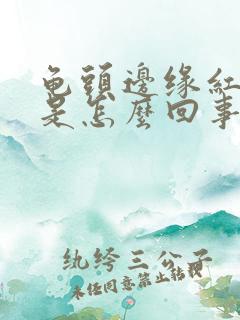 龟頭邊缘紅
是怎麼回事
纨绔三公子
未任同意禁止转载